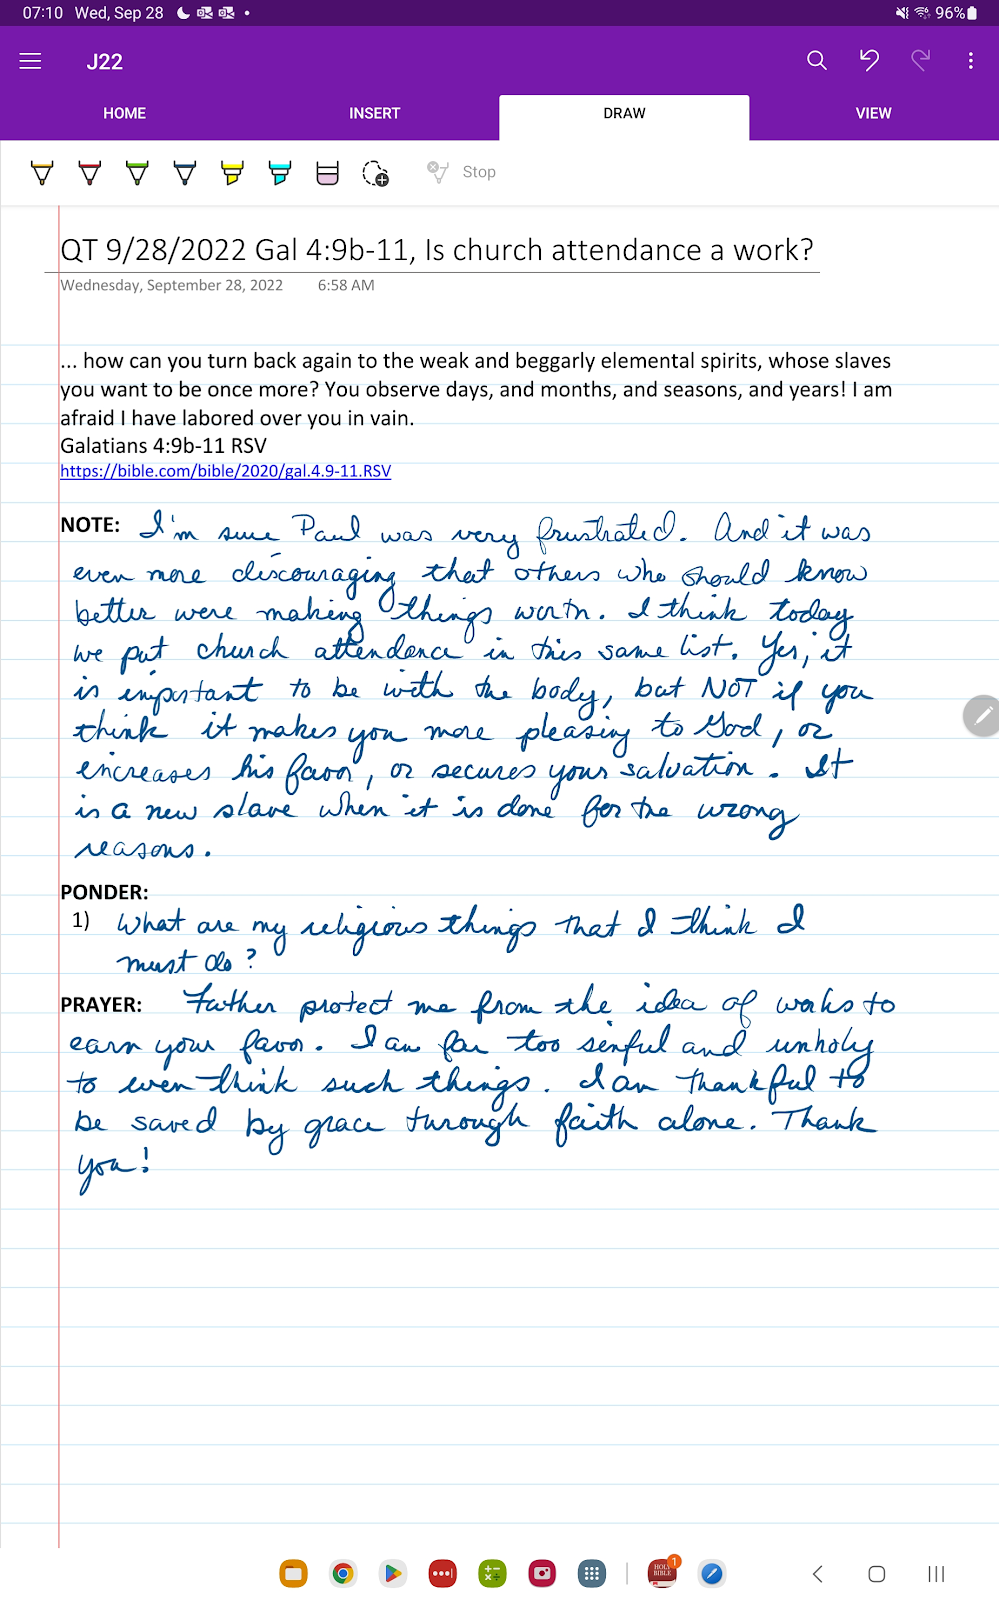 07:10 Wed, Sep 28 96%
J22
HOME INSERT DRAW VIEW
Stop
QT 9/28/2022 Gal 4:9b-11, Is church attendance a work?
Wednesday, September 28, 2022 6:58 AM
... how can you turn back again to the weak and beggarly elemental spirits, whose slaves
you want to be once more? You observe days, and months, and seasons, and years! I am
afraid I have labored over you in vain.
Galatians 4:9b-11 RSV
https://bible.com/bible/2020/gal.4.9-11.RSV
NOTE: I'm sure Paul was very frustrated. And it was
even more discouraging that others who should know
better were making things worse. I think today
we put church attendance in this same list. Yes, it
is important to be with the body, but NOT if you
think it makes you more pleasing to God, or
increases his favor, or secures your salvation. It
is a new slave when it is done for the wrong
reasons.
PONDER:
1) What are my religious things that I think I
must do?
PRAYER: Father protect me from the idea of works to
earn your favor. I am far too sinful and unholy
to even think such things. I am thankful to
be saved by grace through faith alone. Thank
you!
HOLY
BIBLE
1